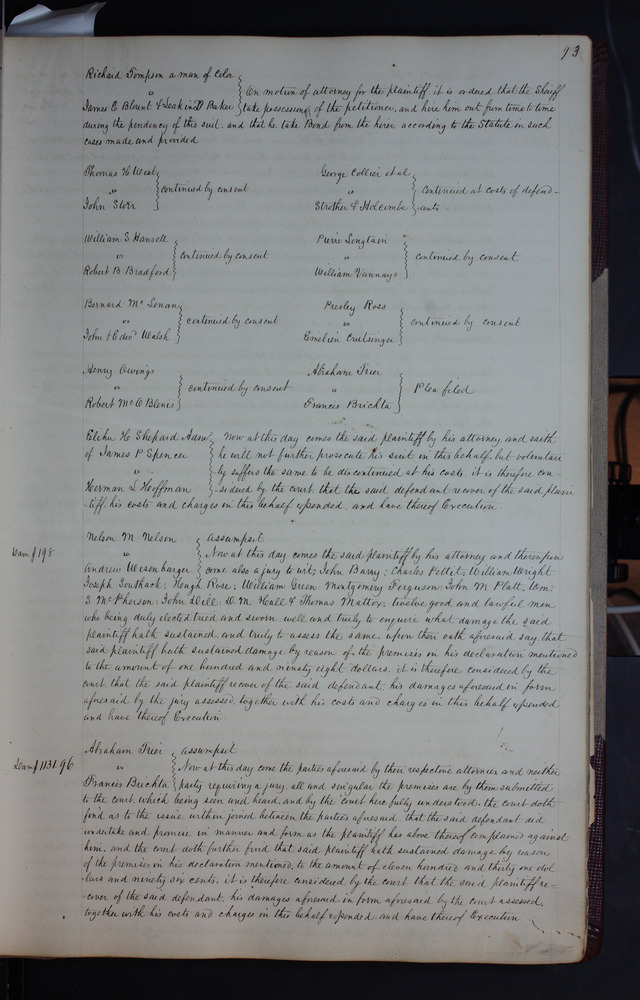 93
Richard Tompson a man of Color
vs
James C Blount & Leakin D Baker
On motion of attorney for the plaintiff it is ordered that the Sheriff
take possession of the petitioner, and hire him out from time to time
during the pendency of this suit, and that he take Bond from the hirer according to the Statute in such
cases made and provided
Thomas H West
vs
John Storr
continued by consent
George Collier et al
vs
Strother & Holcombe
Continued at costs of defend-
ants
William S Hansell
vs
Robert B Bradford
continued by consent
Pierre
vs
William
continued by consent
Bernard Mc
vs
John & Edwd Walsh
continued by consent
Presley Ross
vs
Emelien
continued by consent
Henry Owings
vs
Robert Mc O Blenis
continued by consent
Abraham Trier
vs
Francis Brichta
Plea filed
Elihu H Shepard Admr
of James P Spencer
vs
Herman L Hoffman
Now at this day comes the said plaintiff by his attorney and saith
he will not further prosecute his suit in this behalf, but voluntari
ly suffers the same to be discontinued at his costs. it is therefore con
sidered by the court, that the said defendant recover of the said plain
tiff, his costs and charges in this behalf expended, and have thereof Execution
Nelson M Nelson
vs
Andrew Weisenbarger
assumpsit
Dam $198
Now at this day comes the said plaintiff by his attorney and thereupon
come also a jury to wit; John Barry; Charles Pettit; William Wright
Joseph Southack; Hough Rose; William Green; Montgomery Ferguson; John M Platt; Wm:
S. McPherson; John Dill; D. M. Hall & Thomas Mattox; twelve good and lawful men
who being duly elected tried and sworn, well and truly to enquire what damage the said
plaintiff hath sustained, and truly to assess the same, upon their oath aforesaid say, that
said plaintiff hath sustained damage by reason of the premises in his declaration mentioned
to the amount of one hundred and ninety eight dollars. it is therefore considered by the
court, that the said plaintiff recover of the said defendant, his damages aforesaid in form
aforesaid by the jury assessed, together with his costs and charges in this behalf expended
and have thereof Execution
Abraham Trier
vs
Francis Brichta
assumpsit
Dam $1131.96
Now at this day come the parties aforesaid by their respective attornies and neither
party requiring a jury, all and singular the premises are by them submitted
to the court, which being seen and heard, and by the court here fully understood, the court doth
find as to the issue within joined between the parties aforesaid, that the said defendant did
undertake and promise in manner and form as the plaintiff has above thereof complained against
him, and the court doth further find that said plaintiff hath sustained damage by reason
of the premises in his declaration mentioned, to the amount of eleven hundred and thirty one dol
lars and ninety six cents. it is therefore considered by the court that the said plaintiff re-
cover of the said defendant, his damages aforesaid in form aforesaid by the court assessed,
together with his costs and charges in this behalf expended, and have thereof Execution